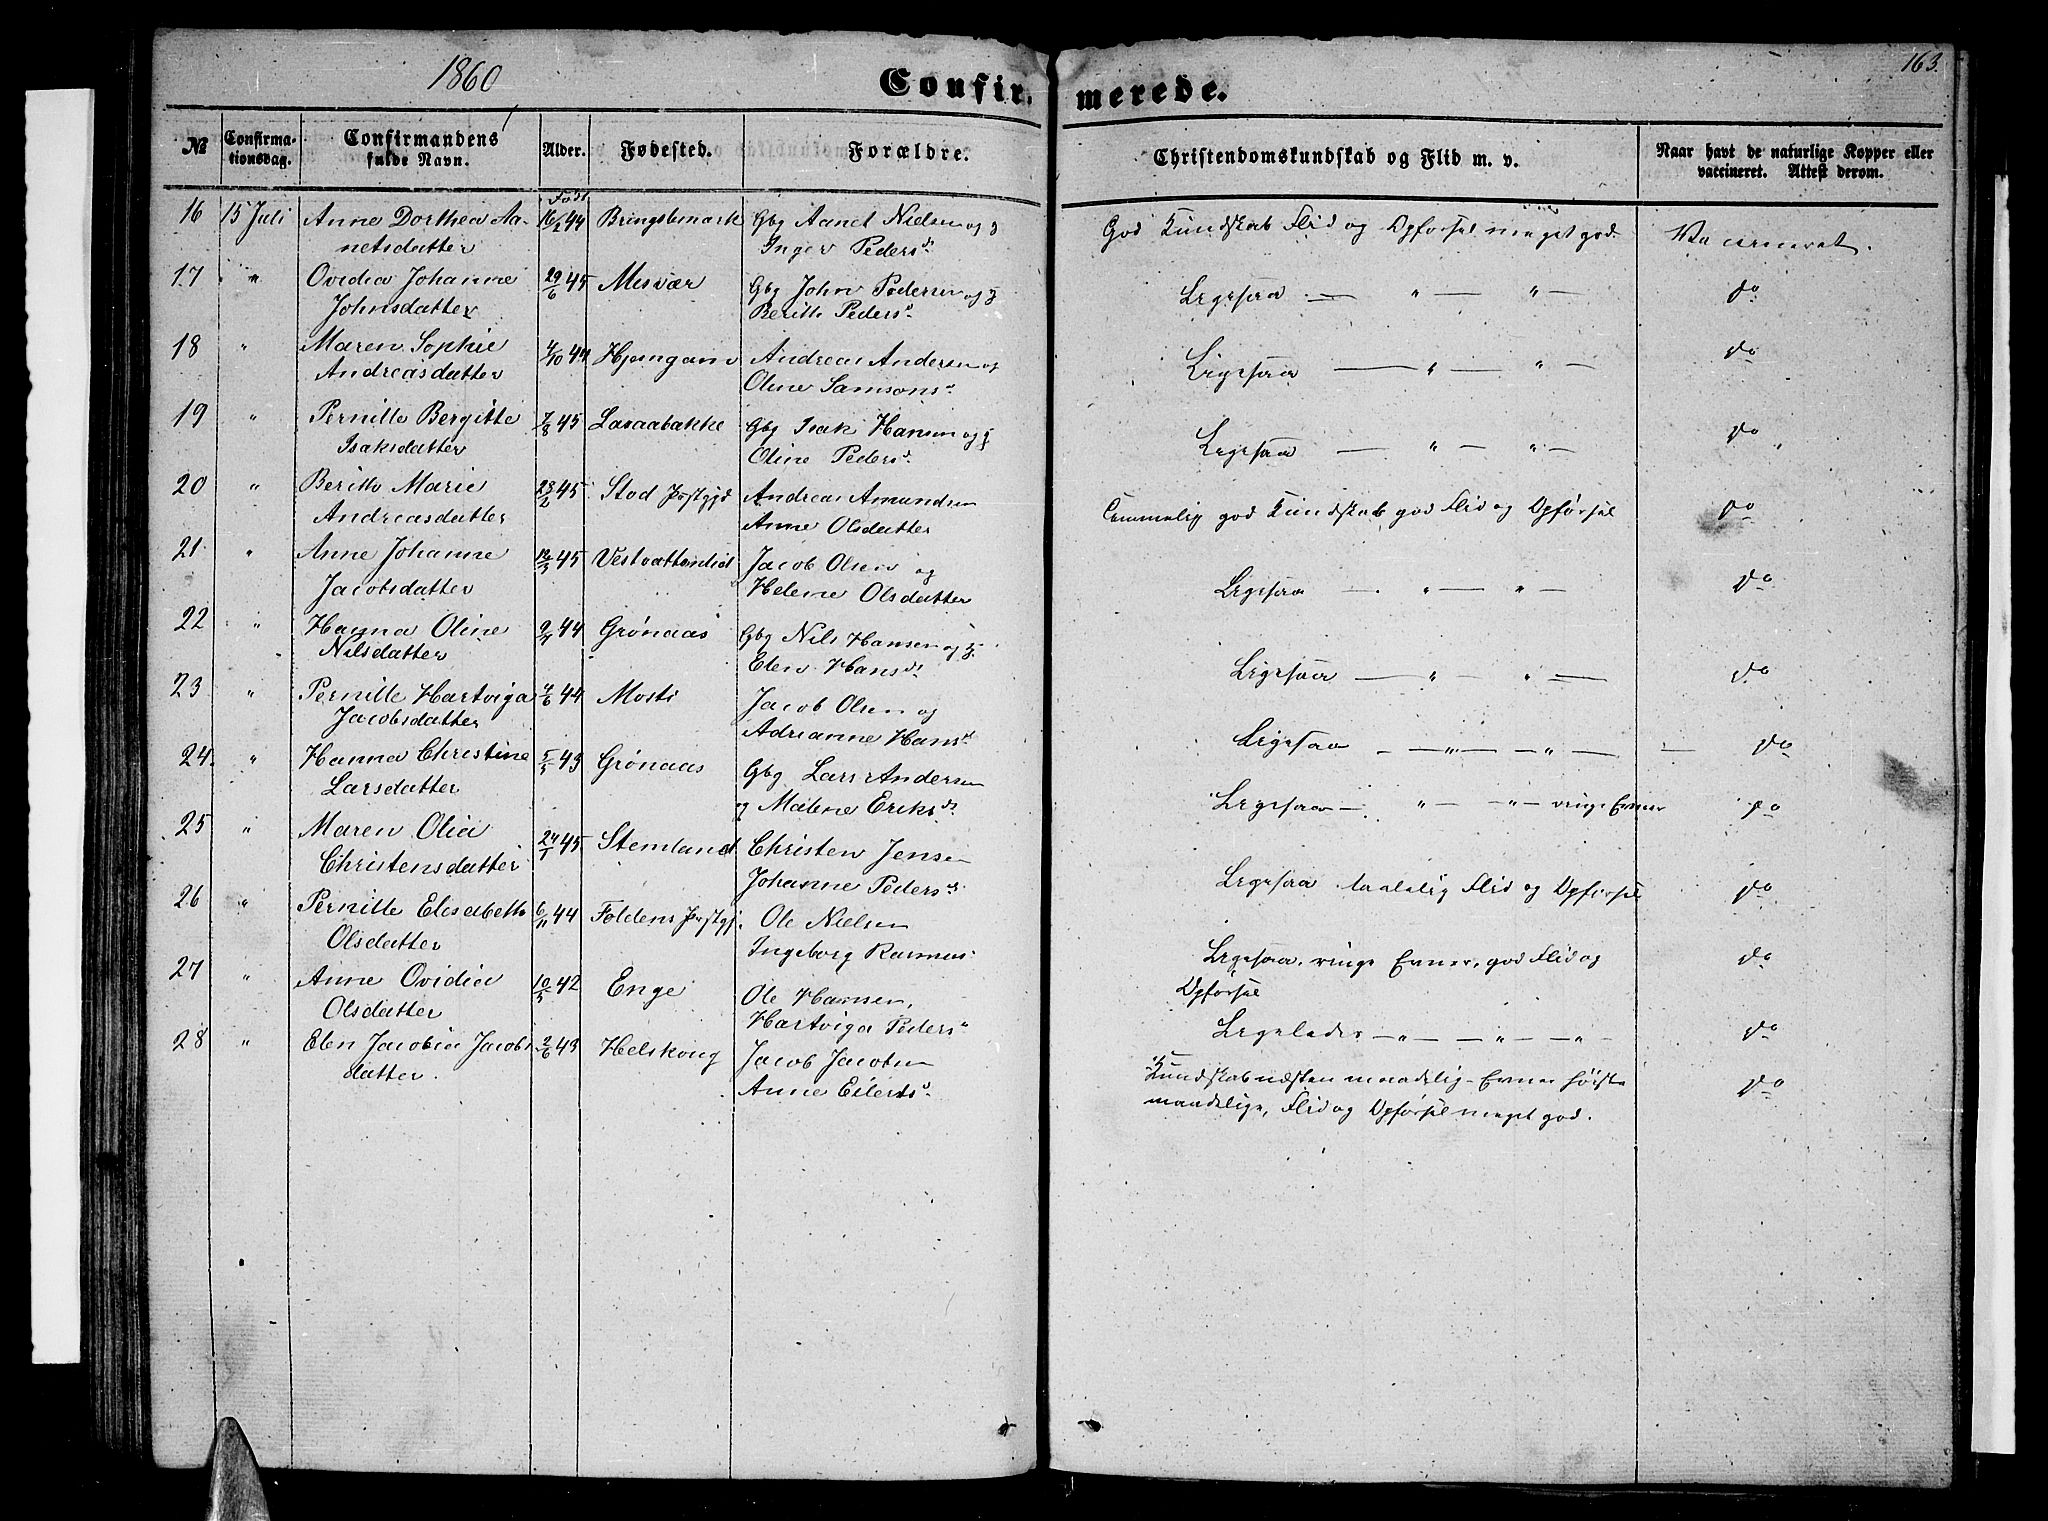 1860
Confirmerede.
163.
№ Confirmationsdag. Confirmandens fulde Navn. Alder. Fødested. Forældre. Christendomskundskab og Flid m. v. Naar havt de naturlige Kopper eller vaccineret. Attest derom.
Født
16 15 Juli Anne Dorthea Aa- 16/2 44 Bringslimark Gbg Aanet Nielsen og God Kundskab Flid og Opførsel meget god. Vaccineret.
netsdatter Inger Pedersd.
17 " Ovidia Johanne 29/6 45 Misvær Gbg John Pedersen og Ligesaa — " — " — do
Johnsdatter Berith Pedersd.
18 " Maren Sophie 4/10 44 Andreas Andersen og Ligesaa — " — " — do
Andreasdatter Oline Samsonsd.
19 " Pernille Bergitte 7/8 45 Lasaabakke Gbg Isak Hansen og Ligesaa — " — " — do
Isaksdatter Oline Pedersd.
20 " Berith Marie 28/2 45 Stod Prstgjd Andreas Amundsen Temmelig god Kundskab god Flid og Opførsel do
Andreasdatter Anne Olsdatter
21 " Anne Johanne 12/3 45 Vestvattenlid Jacob Olsen og Ligesaa — " — " — do
Jacobsdatter Helene Olsdatter
22 " Hanna Oline 44 Grønaas Gbg Nils Hansen og Ligesaa — " — " — do
Nilsdatter Elen Hansd.
23 " Pernille Hartviga 4/6 44 Mosti Jacob Olsen og Ligesaa — " — " — do
Jacobsdatter Adrianne Hansd.
24. " Hanna Christine 5/5 43 Grønaas Gbg Lars Andersen Ligesaa — " — " — ringe Evner do
Larsdatter og Malene Eriksd.
25 " Maren Olia 24/1 45 Stemland Christen Jensen Ligesaa taalelig Flid og Opførsel do
Christensdatter Johanne Pedersd.
26 " Pernille Elisabeth 6/11 44 Foldens Prstgj. Ole Nielsen Ligesaa, ringe Evner, god Flid og do
Olsdatter Ingeborg Rasmusd. Opførsel
27 " Anne Ovidia 10/5 42 Enge Ole Hansen, Ligeledes — " — " — " — do
Olsdatter Hartviga Pedersd.
28 " Elen Jacobia Jacobs 2/6 43 Helskoug Jacob Jacobsen Kundskab næsten maadelig – Evner høist do
datter. Anne Eilertsd. maadelige, Flid og Opførsel meget god.